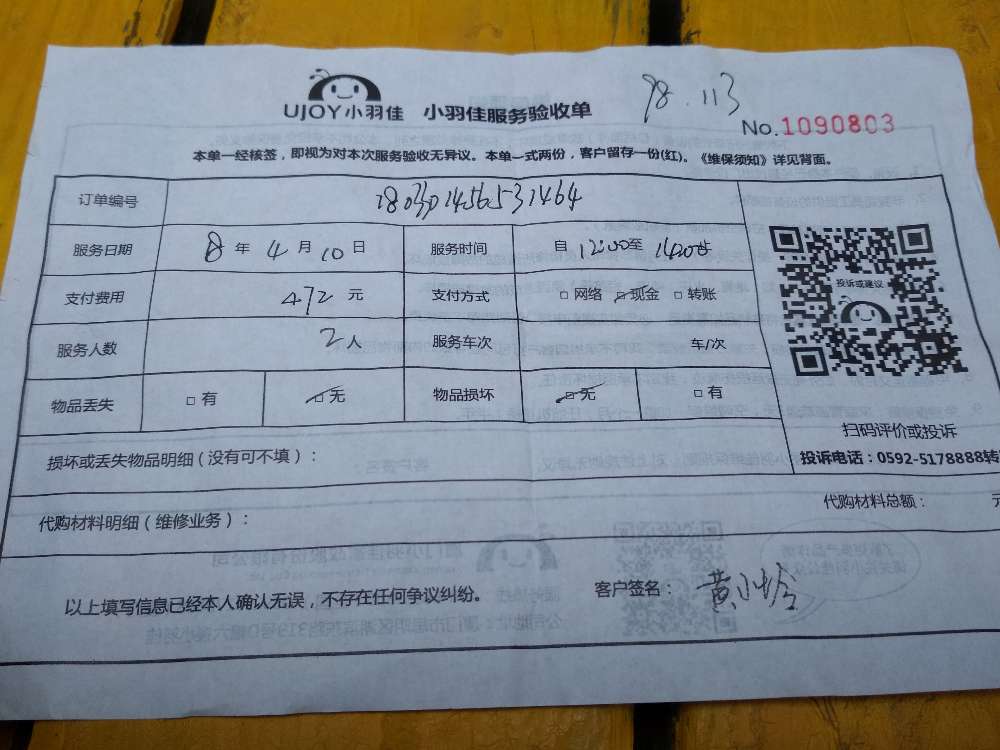 UJOY小羽佳 小羽佳服务验收单 98.113
No.1090803
本单一经核签，即视为对本次服务验收无异议。本单一式两份，客户留存一份(红)。《维保须知》详见背面。
订单编号
服务日期 8 年 4 月 10 日 服务时间 自 12:00至 1400时
支付费用 472 元 支付方式 □ 网络 ☑ 现金 □ 转账
服务人数 2人 服务车次 车/次
物品丢失 □ 有 ☑ 无 物品损坏 ☑ 无 □ 有
投诉或建议
扫码评价或投诉
投诉电话：0592-5178888转
损坏或丢失物品明细（没有可不填）：
代购材料明细（维修业务）： 代购材料总额： 元
以上填写信息已经本人确认无误，不存在任何争议纠纷。 客户签名： 黄小玲